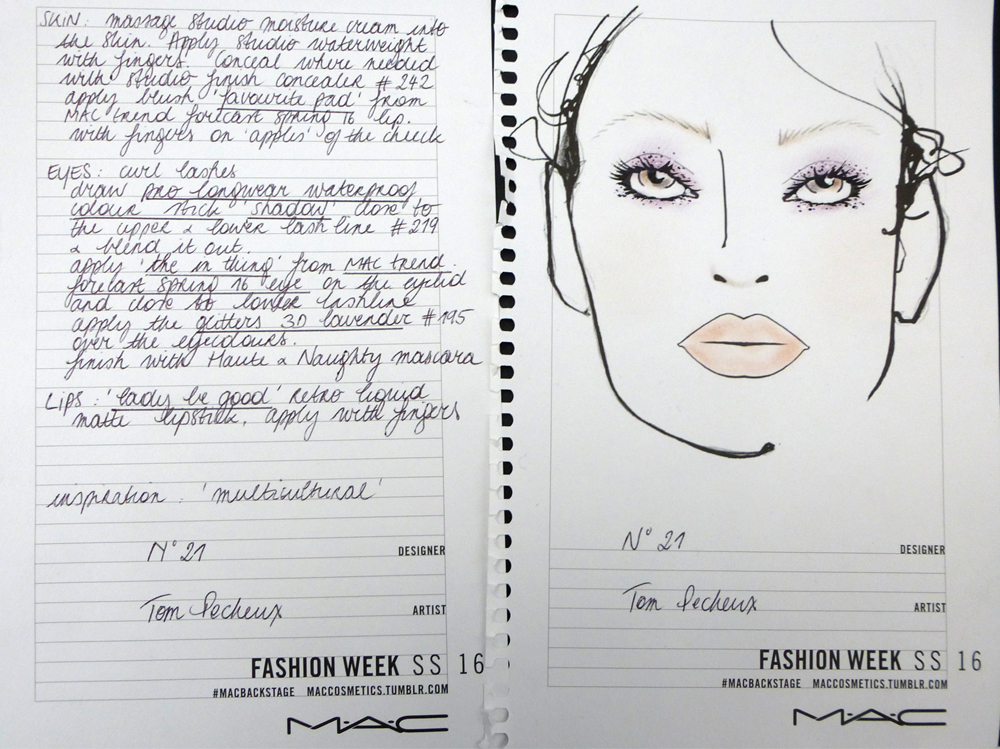 SKIN: massage studio moisture cream into
the skin. Apply studio waterweight
with fingers. Conceal where needed
with studio finish concealer #242
apply blush 'favourite pad' from
MAC trend forecast spring 16 lip.
with fingers on 'apples' of the cheek
EYES: curl lashes
draw pro longwear waterproof
colour stick 'shaday' close to
the upper & lower lash line #219
& blend it out.
apply 'the in thing' from MAC trend
forecast spring 16 eye on the eyelid
and close to lower lashline
apply the glitters 3D lavender #195
over the eyecolours.
finish with Haute & Naughty mascara
LIPS: 'lady be good' retro liquid
matte lipstick, apply with fingers
inspiration: 'multicultural'
N° 21
DESIGNER
Tom Pecheux
ARTIST
FASHION WEEK SS 16
#MACBACKSTAGE MACCOSMETICS.TUMBLR.COM
MAC
N° 21
DESIGNER
Tom Pecheux
ARTIST
FASHION WEEK SS 16
#MACBACKSTAGE MACCOSMETICS.TUMBLR.COM
MAC